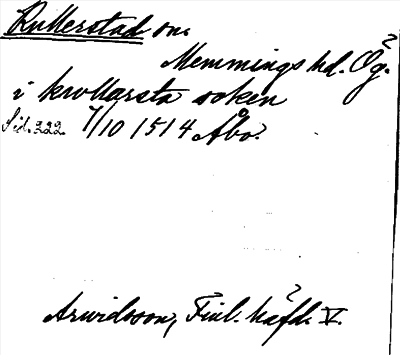 Rullerstad sn.
Memmings hd. Ög.
i krollarsta soken
Sid. 222. 7/10 1514 Åbo.
Arwidsson, Finl. häfd. V.